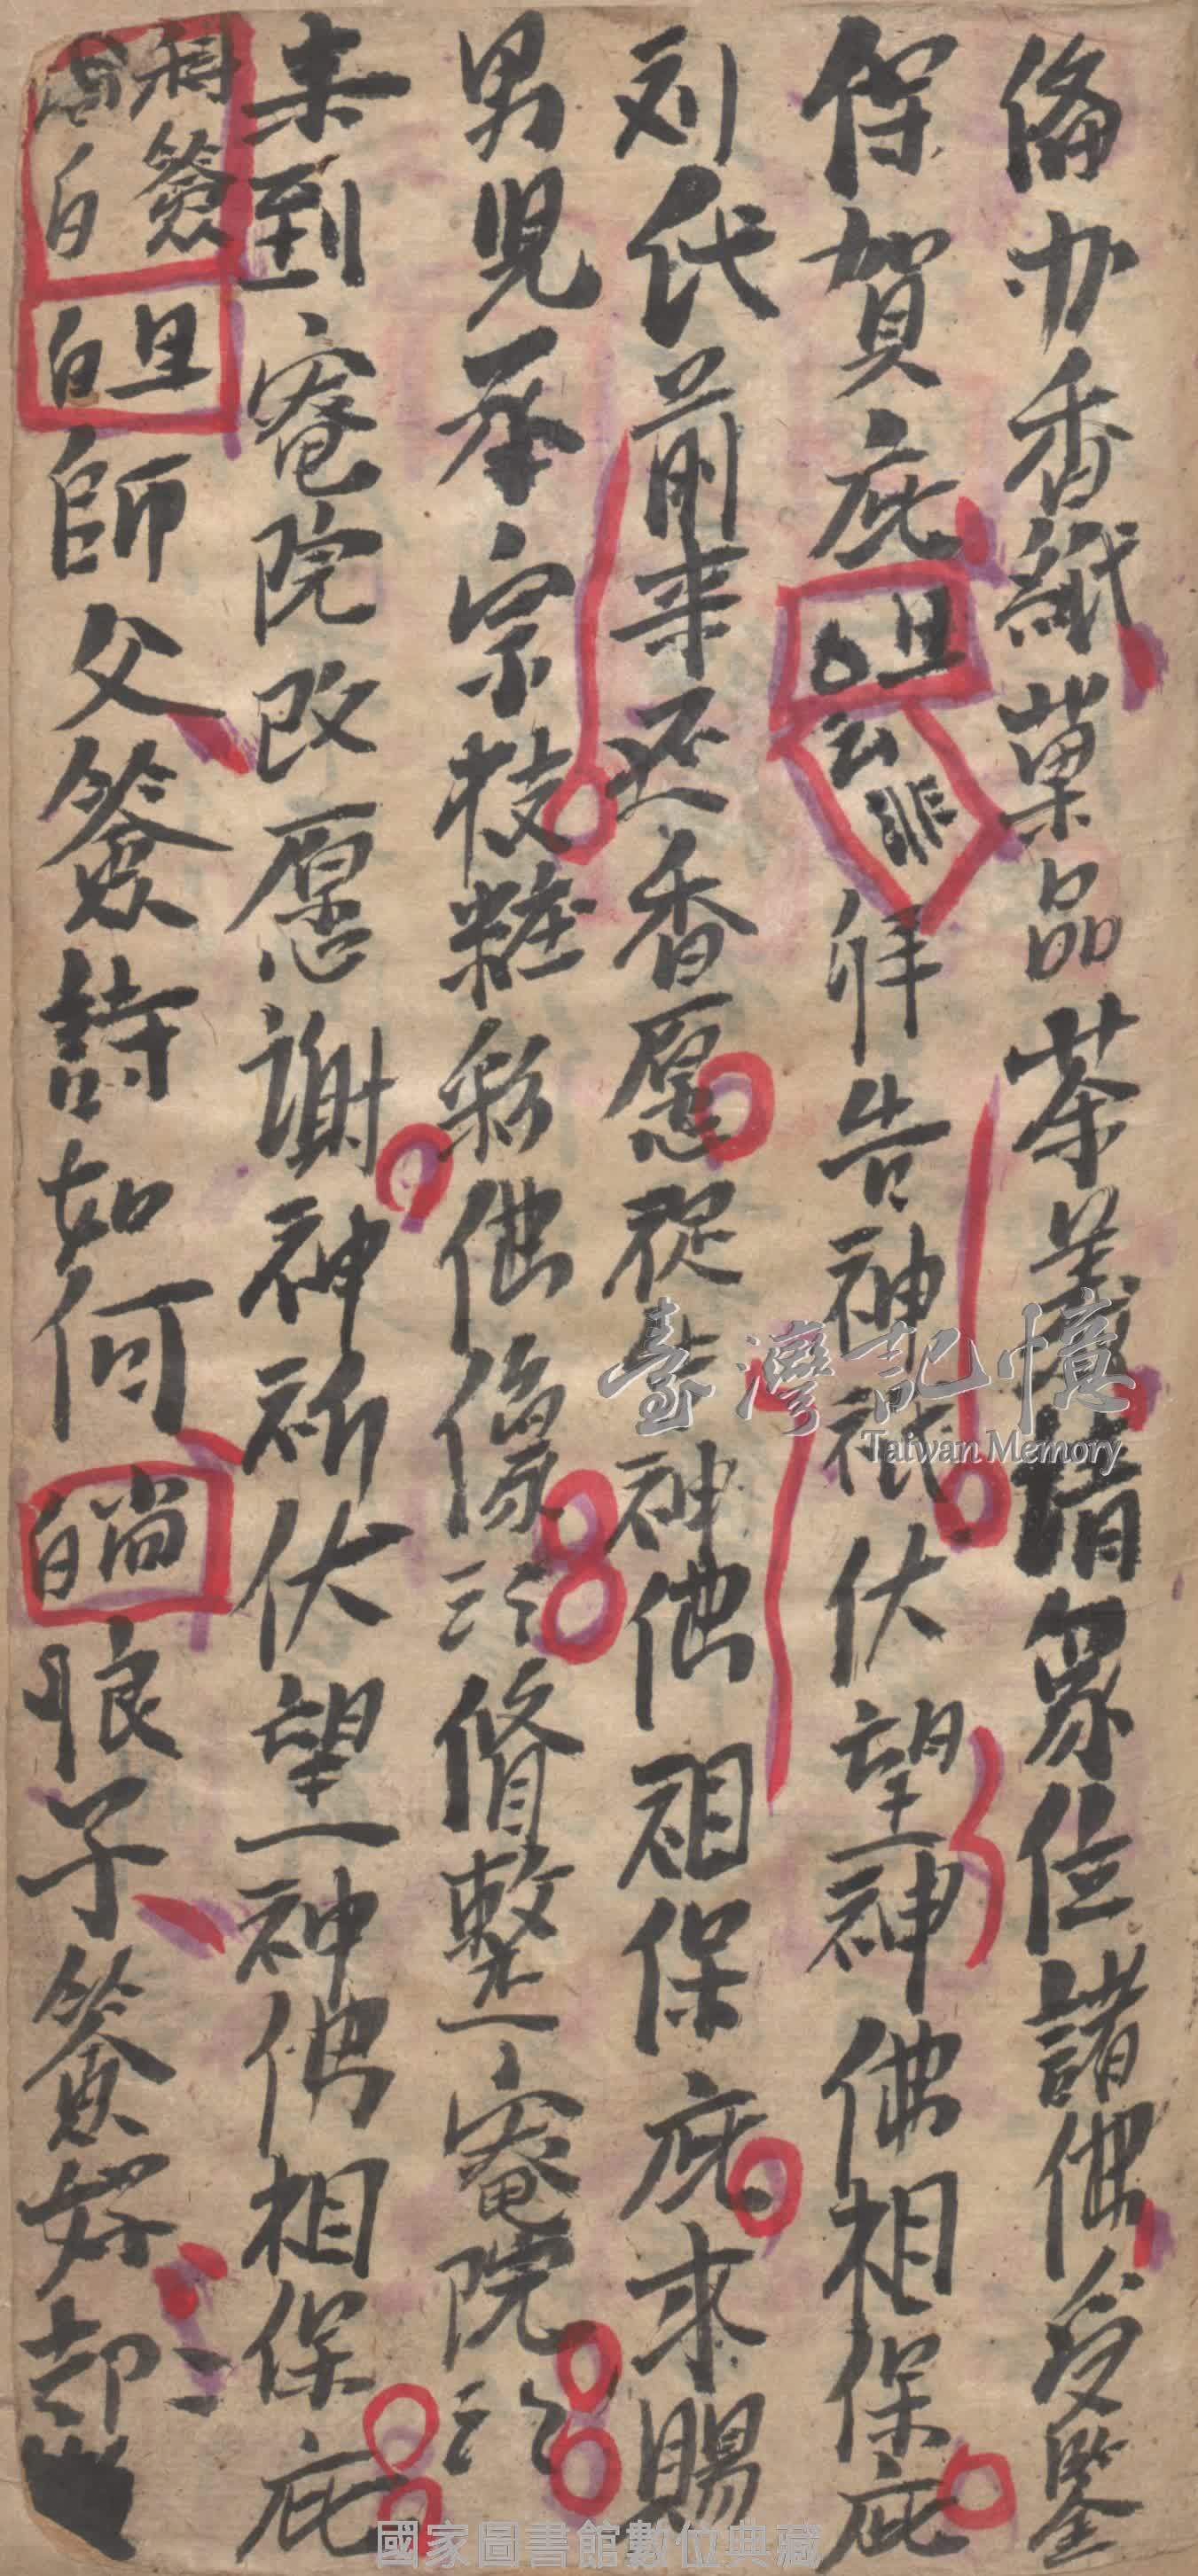 俻办香紙菓品茶
請眾位諸佛受鑒
保賀庇
旦
云
拜告神祇伏望神佛相保庇
刘代前来还香愿祀
神佛相保庇求賜
男児承宗枝粧彩佛像
修整庵院
来到庵院改愿謝神祈伏望神佛相保庇
簽
白
旦
白
師父簽詩如何
尚
白
娘子簽好
却
臺灣記憶
Taiwan Memory
國家圖書館數位典藏